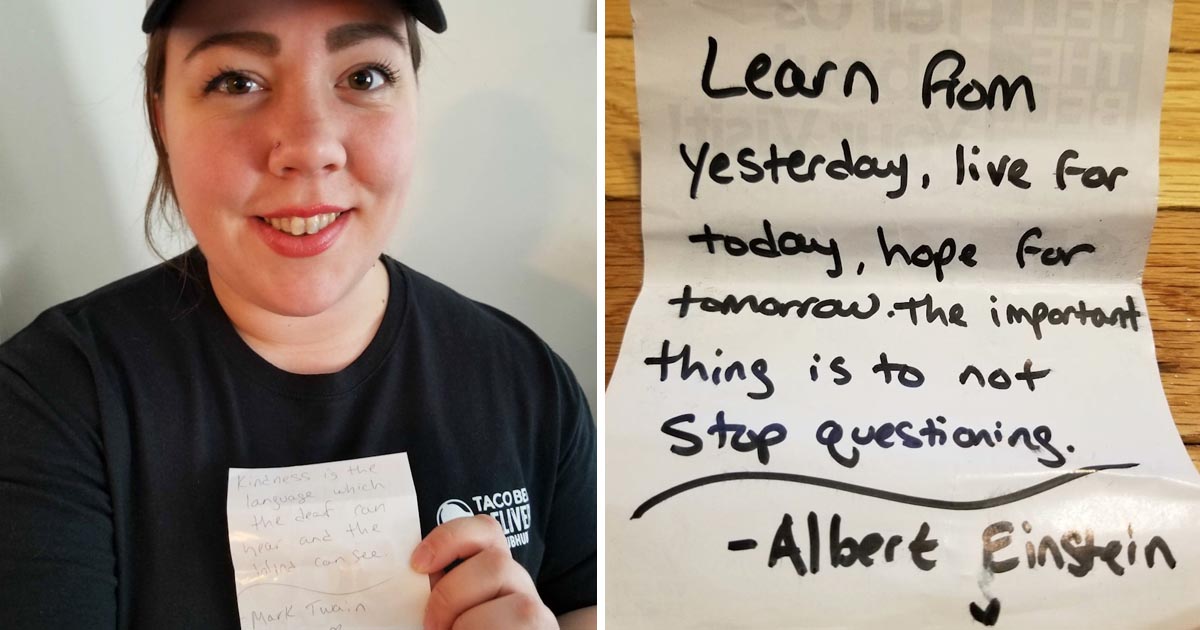 Kindness is the
language which
the deaf can
hear and the
blind can see.
- Mark Twain
TACO BE
DELIVER
UBHUB
Learn from
yesterday, live for
today, hope for
tomorrow. The important
thing is to not
Stop questioning.
- Albert Einstein
TELL
THE
BELL
Tell Us
Your Visit!